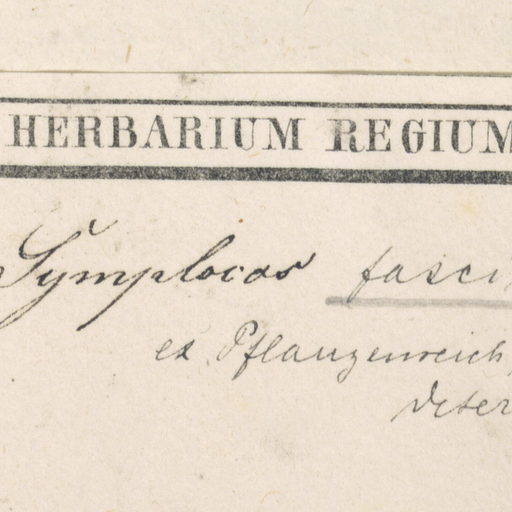 HERBARIUM REGIUM
Symplocos fasci
ex Pflanzenreich,
deter